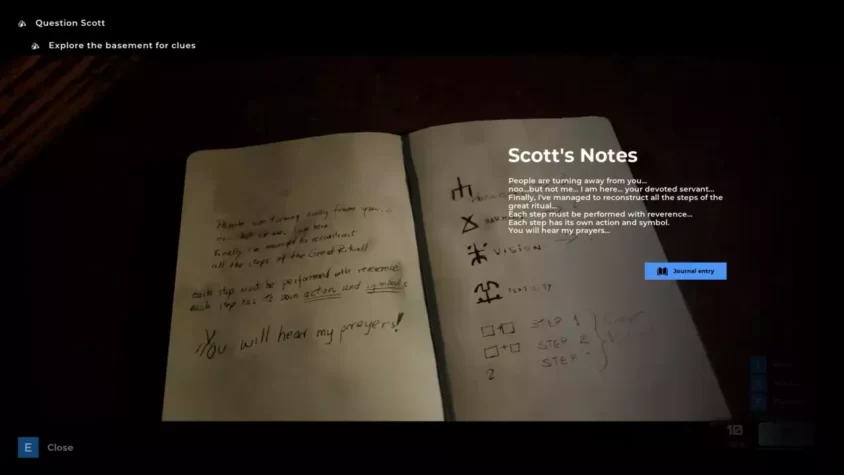 Question Scott
Explore the basement for clues
People are turning away from you...
I am here
Finally I've managed to reconstruct
all the steps of the Great Ritual!
Each step must be performed with reverence
each step has its own action and symbol.
You will hear my prayers!
VISION
STEP 1
STEP 2
STEP
2
Scott's Notes
People are turning away from you...
noo...but not me... I am here... your devoted servant...
Finally, I've managed to reconstruct all the steps of the
great ritual...
Each step must be performed with reverence...
Each step has its own action and symbol.
You will hear my prayers...
Journal entry
10
E Close